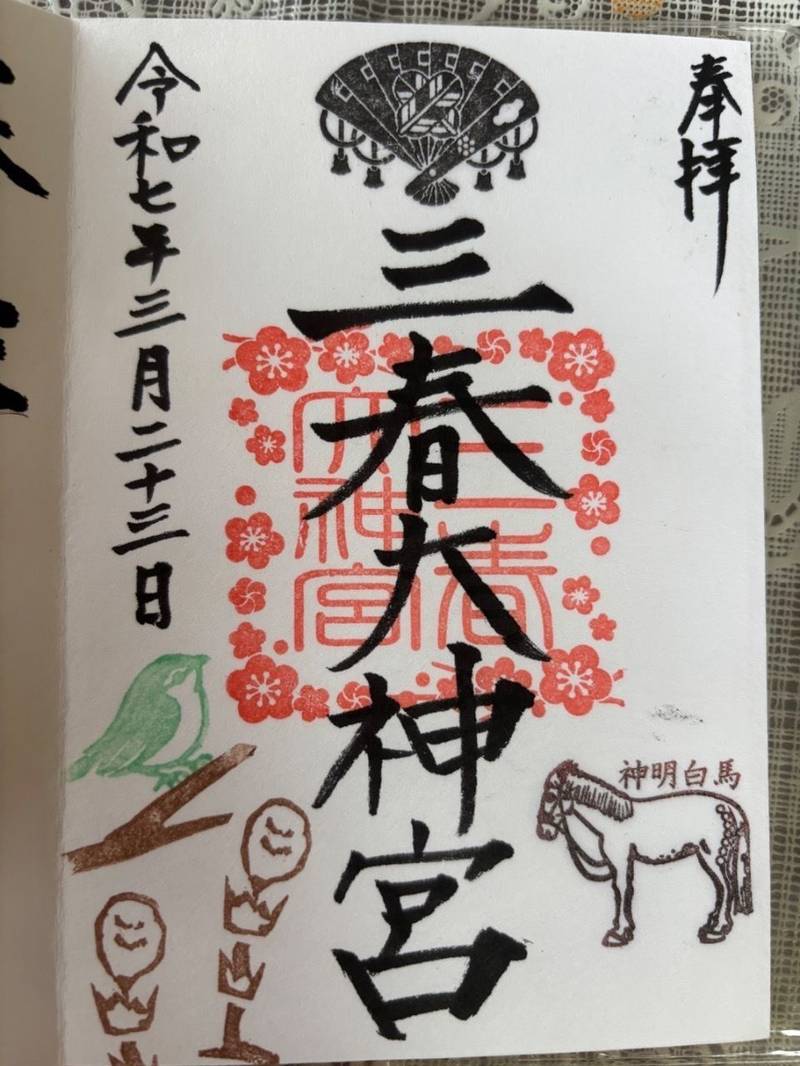 奉拝
三春大神宮
三春
大神宮
神明白馬
令和七年三月二十三日